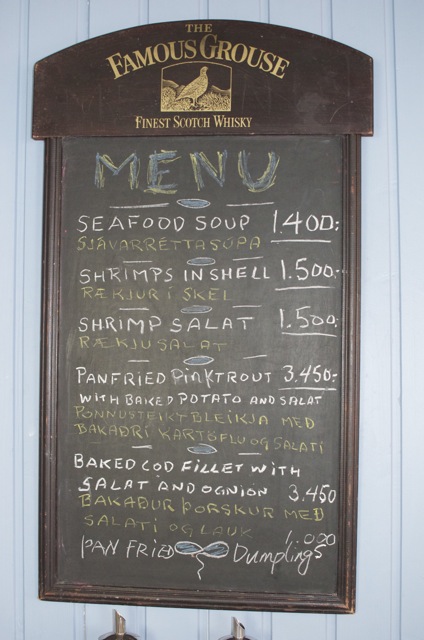 THE
FAMOUS GROUSE
FINEST SCOTCH WHISKY
MENU
SEAFOOD SOUP 1.400:-
SJÁVARRÉTTASÚPA
SHRIMPS IN SHELL 1.500:-
RÆKJUR Í SKEL
SHRIMP SALAT 1.500:-
RÆKJUSALAT
PANFRIED PINKTROUT 3.450:-
WITH BAKED POTATO AND SALAT
PÖNNUSTEIKT BLEIKJA MEÐ
BAKAÐRI KARTÖFLU OG SALATI
BAKED COD FILLET WITH
SALAT AND OGNION 3.450
BAKAÐUR ÞORSKUR MEÐ
SALATI OG LAUK
PAN FRIED Dumplings 1.000